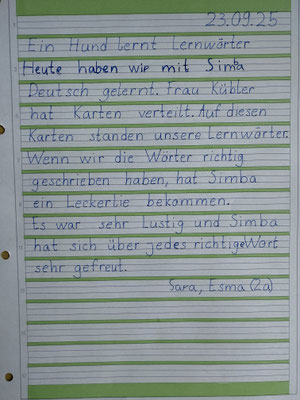 23.09.25
Ein Hund lernt Lernwörter
Heute haben wir mit Simba
Deutsch gelernt. Frau Kübler
hat Karten verteilt. Auf diesen
Karten standen unsere Lernwörter.
Wenn wir die Wörter richtig
geschrieben haben, hat Simba
ein Leckerlie bekommen.
Es war sehr Lustig und Simba
hat sich über jedes richtige Wort
sehr gefreut.
Sara, Esma (2a)